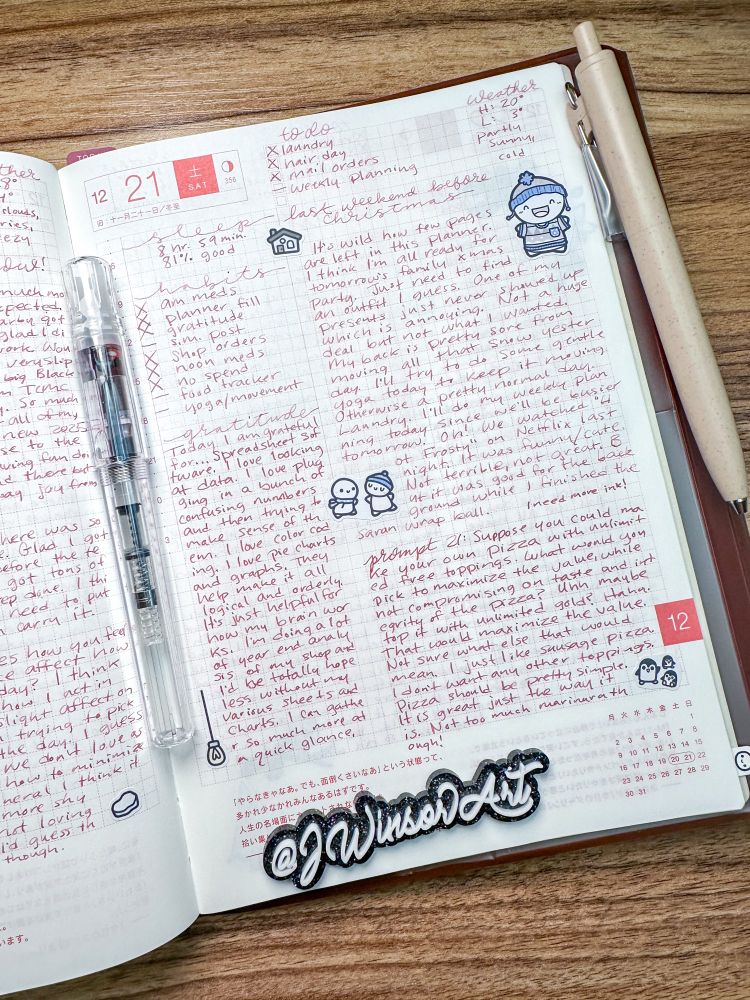 ther
8°
4°
clouds,
ries,
eezy
ow!
uch mo
xpected.
arby got
glad I di
work. Won
very slip
big Black
m TCMC
y. So much
all of my
new 2025
se to the
wing fun doi
nd there but
ay joy from
here was so
e. Glad I got
before the te
got tons of
ep done. I thi
need to put
n carry it.
oes how you feel
ce affect how
day? I think
how I act in
slight affect on
trying to pick
the day. I guess
we don't love as
how to minimize
neral I think it
more shy
not loving
I'd guess th
though.
います。
TO
12 21 土 SAT 356
旧:十一月二十一日/冬至
to do
X laundry
X hair day
X mail orders
– weekly planning
weather
H: 20°
L: 3°
partly
sunny,
cold
sleep
8 hr. 59 min.
81% good
habits
am meds
planner fill
gratitude
s.m. post
shop orders
noon meds
no spend
food tracker
yoga/movement
gratitude
Today I am grateful
for... Spreadsheet sof
tware. I love looking
at data. I love plug
ging in a bunch of
confusing numbers
and then trying to
make sense of th
em. I love color cod
ing. I love pie charts
and graphs. They
help make it all
logical and orderly.
It's just helpful for
how my brain wor
ks. I'm doing a lot
of year end analy
sis of my shop and
I'd be totally hope
less without my
various sheets and
charts. I can gathe
r so much more at
a quick glance.
last weekend before
christmas
It's wild how few pages
are left in this planner.
I think I'm all ready for
tomorrow's family xmas
party. Just need to find
an outfit I guess. One of my
presents just never showed up
which is annoying. Not a huge
deal but not what I wanted.
My back is pretty sore from
moving all that snow yester
day. I'll try to do some gentle
yoga today to keep it moving.
Otherwise a pretty normal day.
Laundry. I'll do my weekly plan
ning today since we'll be busier
tomorrow. Oh! We watched "Hot
Frosty" on Netflix last
night. It was funny/cute.
Not terrible, not great. B
ut it was good for the back
ground while I finished the
saran wrap ball.
I need more ink!
prompt 21: Suppose you could ma
ke your own pizza with unlimit
ed free toppings. What would you
pick to maximize the value, while
not compromising on taste and int
egrity of the pizza? Uhh maybe
top it with unlimited gold? Haha.
That would maximize the value.
Not sure what else that would
mean. I just like sausage pizza.
I don't want any other toppings.
Pizza should be pretty simple.
It is great just the way it
is. Not too much marinara th
ough!
12
「やらなきゃなあ。でも、面倒くさいなあ」という状態って、
多かれ少なかれみんなあるはずです。
人生の名場面に
拾い集
月 火 水 木 金 土 日
1
2 3 4 5 6 7 8
9 10 11 12 13 14 15
16 17 18 19 20 21 22
23 24 25 26 27 28 29
30 31
@JWinsorArt